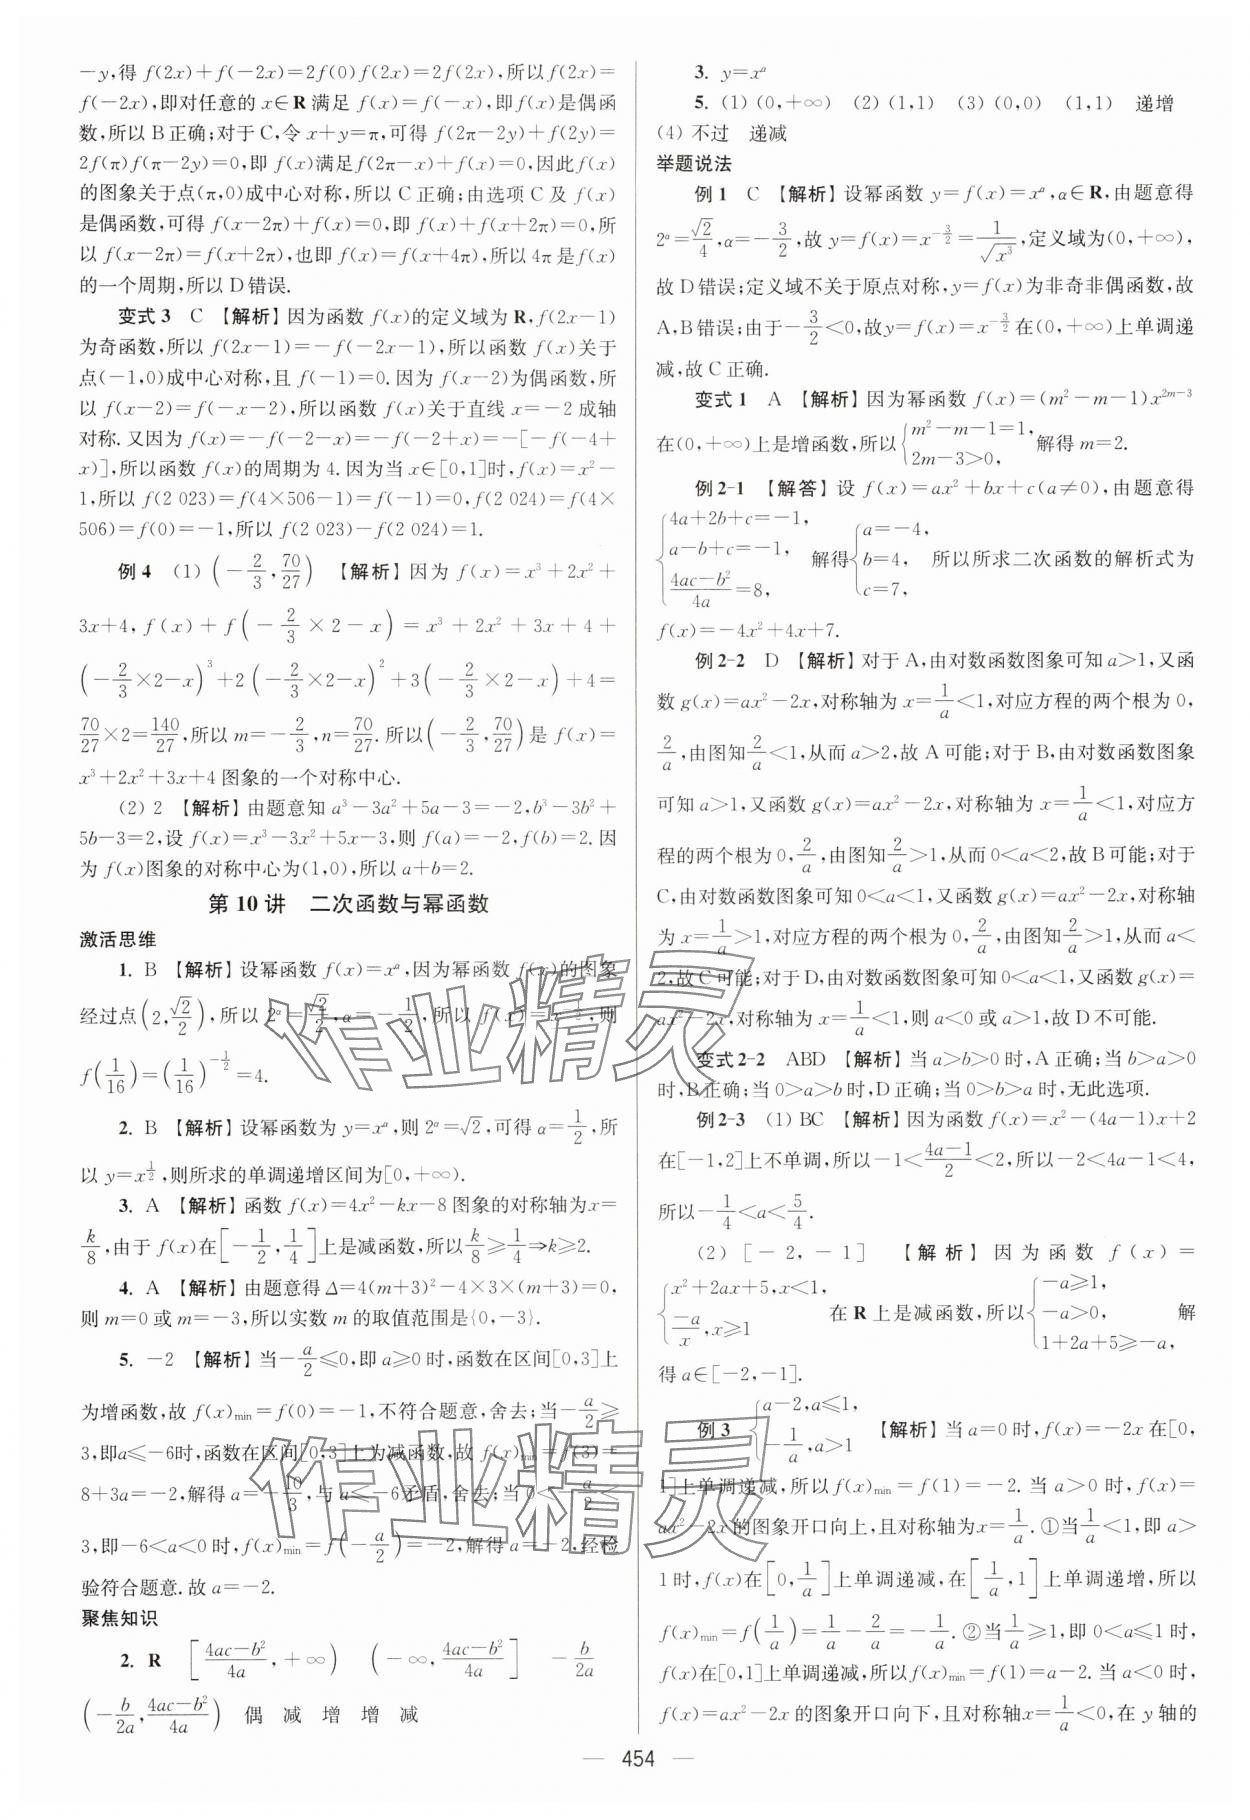 －y,得 f(2x)+f(－2x)=2f(0)f(2x)=2f(2x),所以 f(2x)=
f(－2x),即对任意的 x∈R 满足 f(x)=f(－x),即 f(x)是偶函
数,所以 B正确;对于 C,令 x+y=π,可得 f(2π－2y)+f(2y)=
2f(π)f(π－2y)=0,即 f(x)满足f(2π－x)+f(x)=0,因此f(x)
的图象关于点(π,0)成中心对称,所以 C正确;由选项 C 及 f(x)
是偶函数,可得 f(x－2π)+f(x)=0,即 f(x)+f(x+2π)=0,所
以 f(x－2π)=f(x+2π),也即 f(x)=f(x+4π),所以 4π是 f(x)
的一个周期,所以 D错误.
变式 3 C 【解析】因为函数 f(x)的定义域为 R,f(2x－1)
为奇函数,所以 f(2x－1)=－f(－2x－1),所以函数 f(x)关于
点(－1,0)成中心对称,且 f(－1)=0.因为 f(x－2)为偶函数,所
以 f(x－2)=f(－x－2),所以函数 f(x)关于直线 x=－2 成轴
对称.又因为 f(x)=－f(－2－x)=－f(－2+x)=－[－f(－4+
x)],所以函数 f(x)的周期为 4.因为当 x∈[0,1]时,f(x)=x²－
1,所以 f(2 023)=f(4×506－1)=f(－1)=0,f(2 024)=f(4×
506)=f(0)=－1,所以 f(2 023)－f(2 024)=1.
例 4 (1) (－2/3, 70/27) 【解析】因为 f(x)=x³+2x²+
3x+4, f(x)+f(－2/3×2－x)=x³+2x²+3x+4+
(－2/3×2－x)³+2(－2/3×2－x)²+3(－2/3×2－x)+4=
70/27×2=140/27,所以 m=－2/3,n=70/27.所以(－2/3, 70/27)是 f(x)=
x³+2x²+3x+4 图象的一个对称中心.
(2) 2 【解析】由题意知 a³－3a²+5a－3=－2,b³－3b²+
5b－3=2,设 f(x)=x³－3x²+5x－3,则 f(a)=－2,f(b)=2.因
为 f(x)图象的对称中心为(1,0),所以 a+b=2.
第 10 讲 二次函数与幂函数
激活思维
1. B 【解析】设幂函数 f(x)=xᵅ,因为幂函数 f(x)的图象
经过点(2,√2/2),所以 2ᵅ=√2/2,α=－1/2,所以 f(x)=x^(－1/2),则
f(1/16)=(1/16)^(－1/2)=4.
2. B 【解析】设幂函数为 y=xᵅ,则 2ᵅ=√2,可得 α=1/2,所
以 y=x^(1/2),则所求的单调递增区间为[0,+∞).
3. A 【解析】函数 f(x)=4x²－kx－8 图象的对称轴为x=
k/8,由于 f(x)在[－1/2, 1/4]上是减函数,所以k/8≥1/4⇒k≥2.
4. A 【解析】由题意得 Δ=4(m+3)²－4×3×(m+3)=0,
则 m=0 或 m=－3,所以实数 m 的取值范围是{0,－3}.
5. －2 【解析】当－a/2≤0,即 a≥0 时,函数在区间[0,3]上
为增函数,故 f(x)min=f(0)=－1,不符合题意,舍去;当－a/2≥
3,即a≤－6时,函数在区间[0,3]上为减函数,故 f(x)min=f(3)=
8+3a=－2,解得 a=－10/3,与 a≤－6矛盾,舍去;当 0<－a/2<
3,即－6<a<0 时,f(x)min=f(－a/2)=－2,解得 a=－2,经检
验符合题意.故 a=－2.
聚焦知识
2. R [4ac－b²/4a,+∞) (－∞,4ac－b²/4a] －b/2a
(－b/2a,4ac－b²/4a) 偶 减 增 增 减
3. y=xᵅ
5. (1) (0,+∞) (2) (1,1) (3) (0,0) (1,1) 递增
(4) 不过 递减
举题说法
例 1 C 【解析】设幂函数 y=f(x)=xᵅ,α∈R,由题意得
2ᵅ=√2/4,α=－3/2,故 y=f(x)=x^(－3/2)=1/√x³,定义域为(0,+∞),
故 D错误;定义域不关于原点对称,y=f(x)为非奇非偶函数,故
A,B错误;由于－3/2<0,故y=f(x)=x^(－3/2)在(0,+∞)上单调递
减,故 C正确.
变式 1 A 【解析】因为幂函数 f(x)=(m²－m－1)x^(2m－3)
在(0,+∞)上是增函数,所以{m²－m－1=1, 2m－3>0, 解得 m=2.
例 2-1 【解答】设 f(x)=ax²+bx+c(a≠0),由题意得
{4a+2b+c=－1, a－b+c=－1, 4ac－b²/4a=8, 解得{a=－4, b=4, c=7, 所以所求二次函数的解析式为
f(x)=－4x²+4x+7.
例 2-2 D 【解析】对于 A,由对数函数图象可知 a>1,又函
数 g(x)=ax²－2x,对称轴为 x=1/a<1,对应方程的两个根为 0,
2/a,由图知2/a<1,从而 a>2,故 A 可能;对于 B,由对数函数图象
可知 a>1,又函数 g(x)=ax²－2x,对称轴为 x=1/a<1,对应方
程的两个根为 0,2/a,由图知2/a>1,从而 0<a<2,故 B可能;对于
C,由对数函数图象可知 0<a<1,又函数 g(x)=ax²－2x,对称轴
为 x=1/a>1,对应方程的两个根为 0,2/a,由图知2/a>1,从而 a<
2,故 C可能;对于 D,由对数函数图象可知 0<a<1,又函数 g(x)=
ax²－2x,对称轴为 x=1/a<1,则 a<0 或 a>1,故 D不可能.
变式 2-2 ABD 【解析】当 a>b>0 时,A正确;当 b>a>0
时,B正确;当 0>a>b时,D正确;当 0>b>a 时,无此选项.
例 2-3 (1) BC 【解析】因为函数 f(x)=x²－(4a－1)x+2
在[－1,2]上不单调,所以－1<4a－1/2<2,所以－2<4a－1<4,
所以－1/4<a<5/4.
(2) [－2,－1] 【解析】因为函数 f(x)=
{x²+2ax+5,x<1, －a/x,x≥1 在 R 上是减函数,所以{－a≥1, －a>0, 1+2a+5≥－a, 解
得 a∈[－2,－1].
例 3 {a－2,a≤1, －1/a,a>1 【解析】当 a=0 时,f(x)=－2x 在[0,
1]上单调递减,所以 f(x)min=f(1)=－2.当 a>0 时,f(x)=
ax²－2x的图象开口向上,且对称轴为x=1/a.①当1/a<1,即 a>
1时,f(x)在[0,1/a]上单调递减,在[1/a,1]上单调递增,所以
f(x)min=f(1/a)=1/a－2/a=－1/a.②当1/a≥1,即 0<a≤1 时,
f(x)在[0,1]上单调递减,所以 f(x)min=f(1)=a－2.当 a<0 时,
f(x)=ax²－2x 的图象开口向下,且对称轴x=1/a<0,在 y 轴的
— 454 —
作业精灵
作业精灵